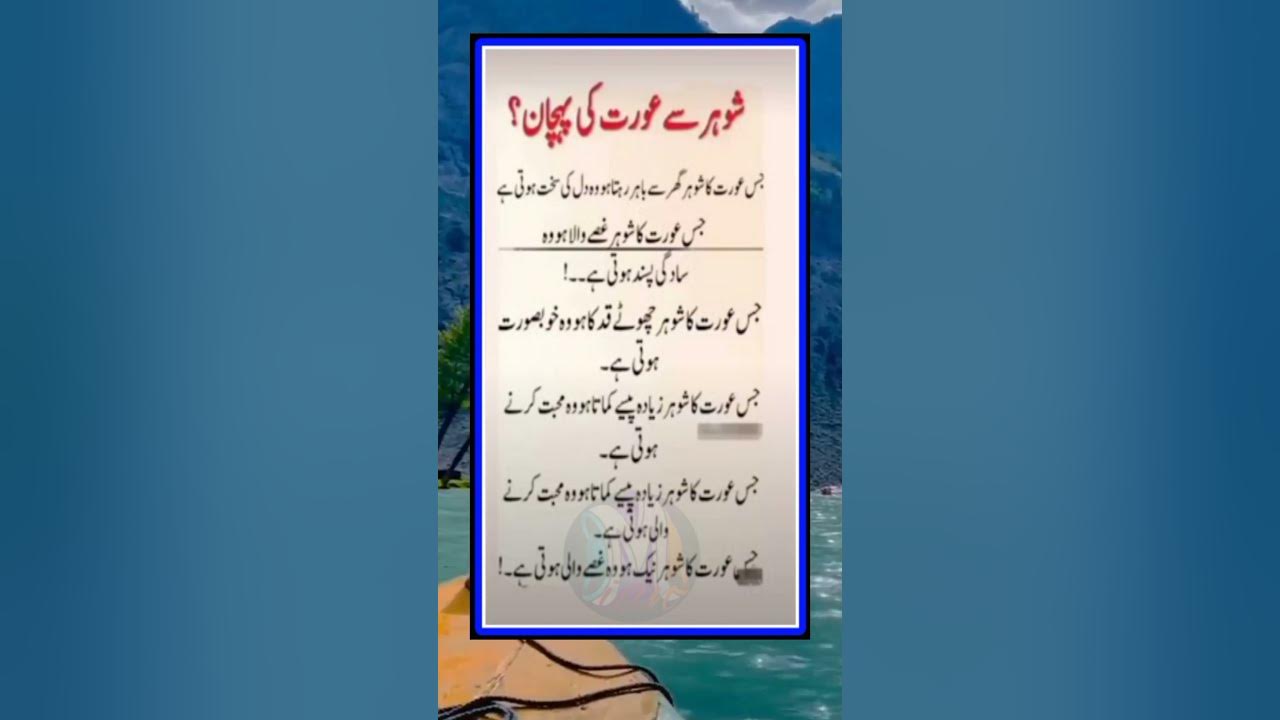 شوہر سے عورت کی پہچان؟
جس عورت کا شوہر گھر سے باہر رہتا ہو وہ دل کی سخت ہوتی ہے
جس عورت کا شوہر غصے والا ہو وہ
سادگی پسند ہوتی ہے۔۔!
جس عورت کا شوہر چھوٹے قد کا ہو وہ خوبصورت
ہوتی ہے۔
جس عورت کا شوہر زیادہ پیسے کماتا ہو وہ محبت کرنے
ہوتی ہے۔
جس عورت کا شوہر زیادہ پیسے کماتا ہو وہ محبت کرنے
والی ہوتی ہے۔
جس عورت کا شوہر نیک ہو وہ غصے والی ہوتی ہے۔!